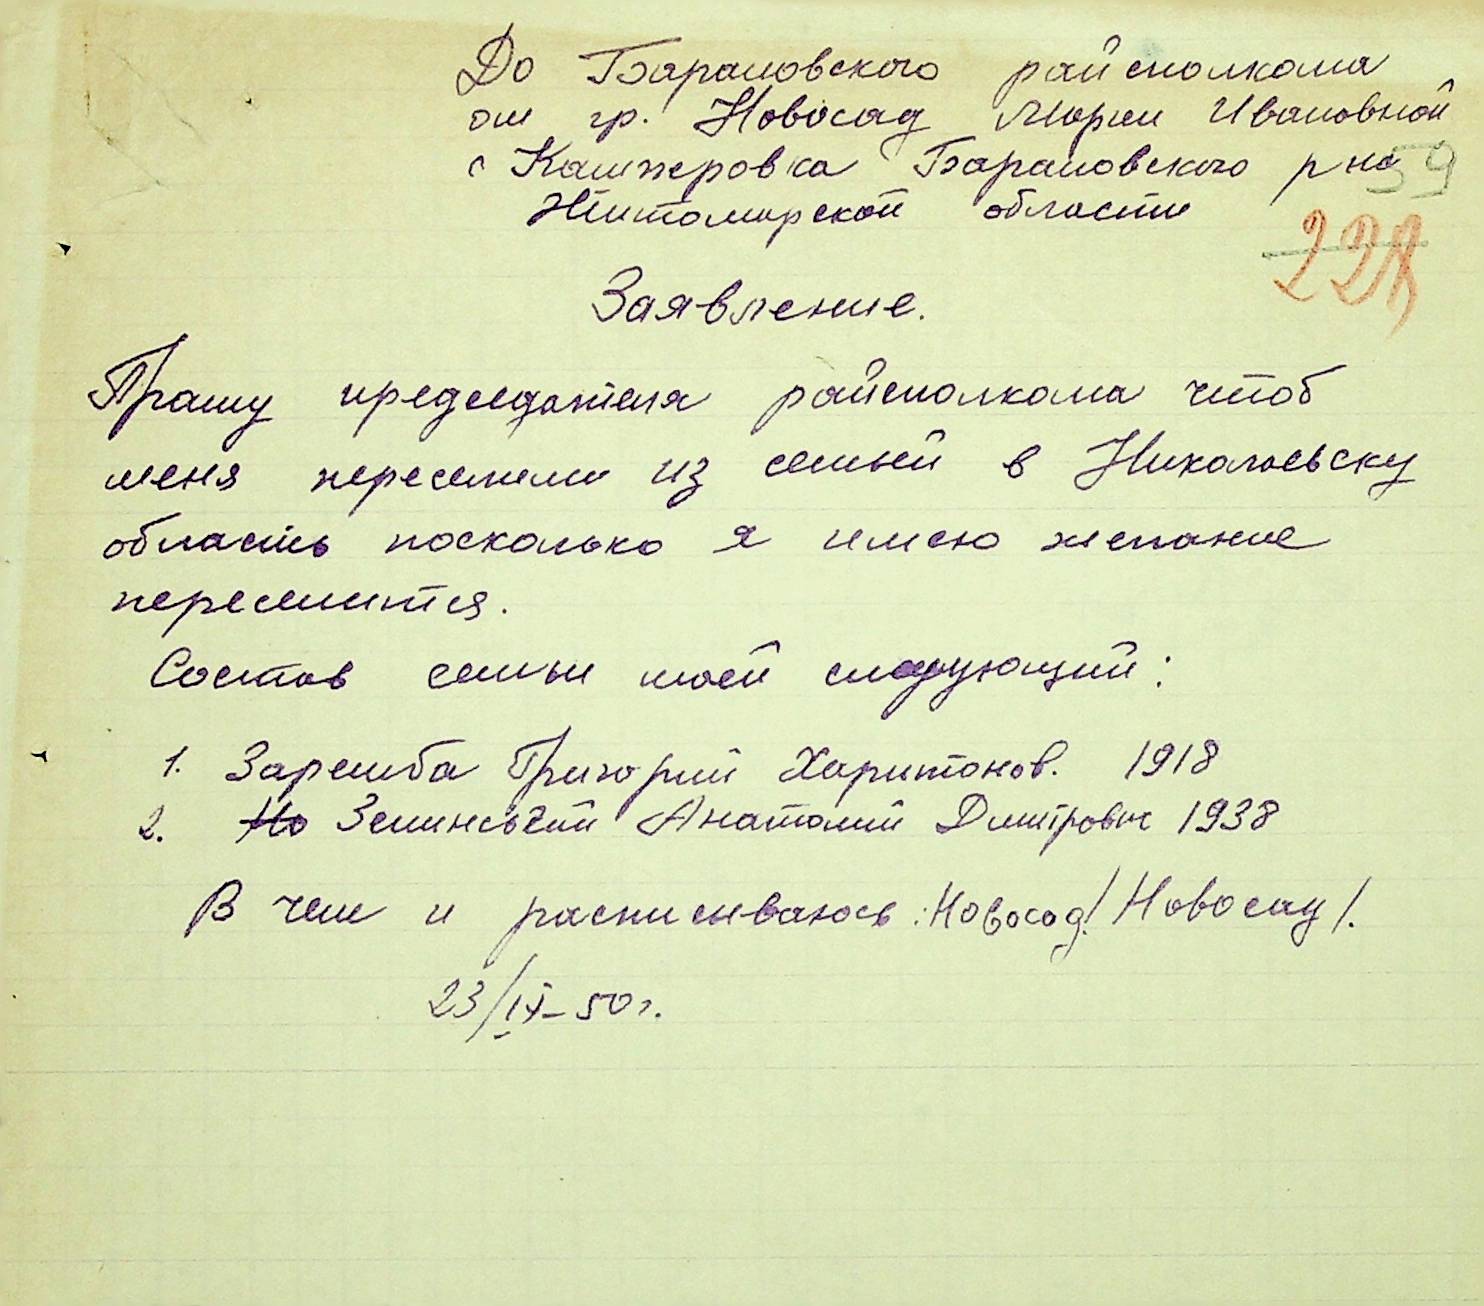 До Барановского райсполкома
от гр. Новосад Марии Ивановной
с Кашперовка Барановского р на
59
Житомирской области
228
Заявление.
Прашу председателя райсполкома чтоб
меня переселили из семьей в Николаевску
область поскольку я имею желание
переселится.
Состав семьи моей следующий:
1. Заремба Григорий Харитонов. 1918
2. Но Зелинський Анатолий Дмитрович 1938
В чем и расписываюсь: Новосад /Новосад/.
23/IX-50г.